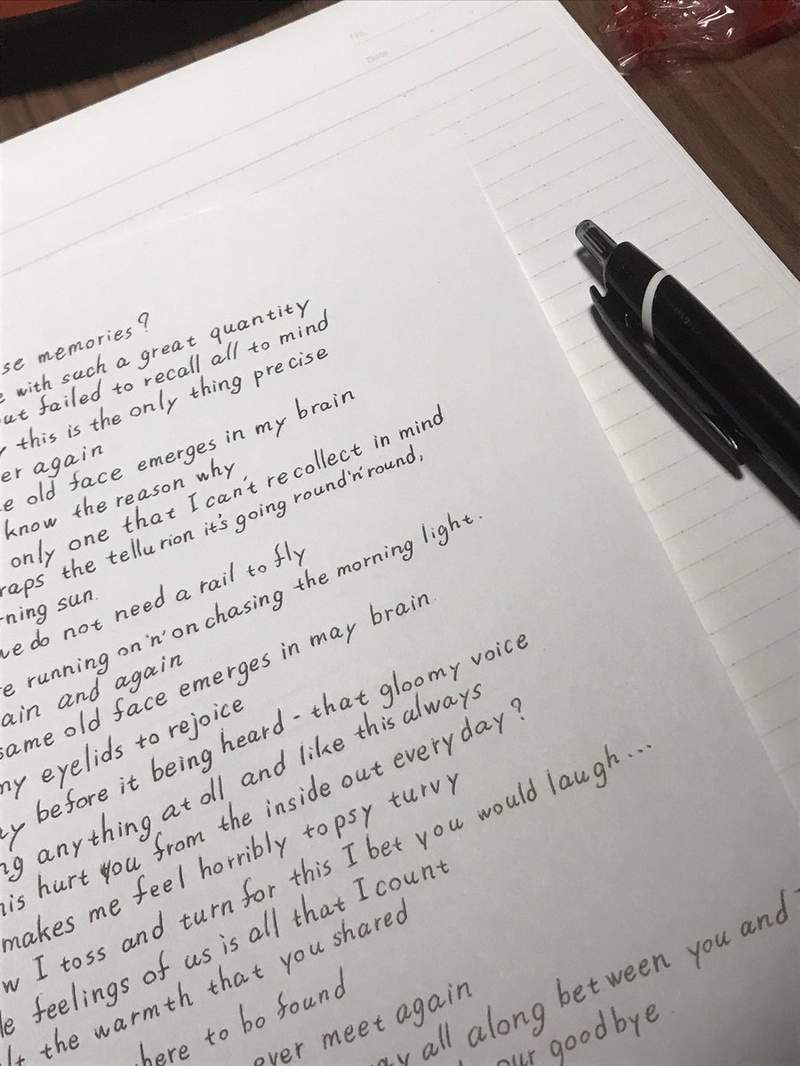 No.
Date
se memories?
e with such a great quantity
ut failed to recall all to mind
this is the only thing precise
er again
e old face emerges in my brain
know the reason why
only one that I can't recollect in mind
raps the tellurion it's going round'n'round,
rning sun.
we do not need a rail to fly
e running on'n'on chasing the morning light.
ain and again
same old face emerges in may brain.
my eyelids to rejoice
before it being heard - that gloomy voice
ng anything at all and like this always
his hurt you from the inside out everyday?
makes me feel horribly topsy turvy
w I toss and turn for this I bet you would laugh...
le feelings of us is all that I count
the warmth that you shared
here to bo found
ever meet again
all along between you and
our goodbye.